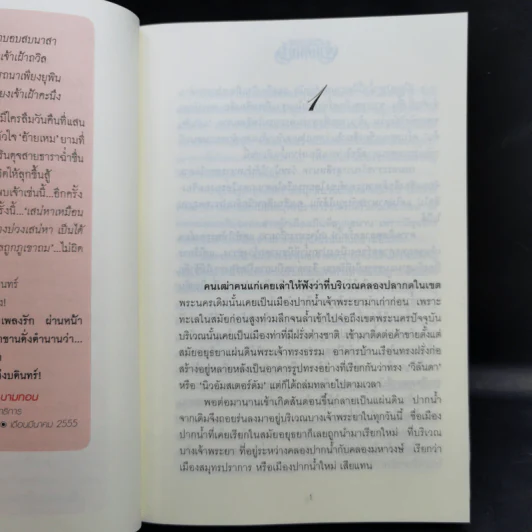 าบอบสบนาสา
นเจ้าเฝ้าถวิล
รถนาเพียงยุพิน
ยงเจ้าเฝ้าคะนึง
มีใครลืมวันคืนที่แสน
หัวใจ "อ้ายเหม" ยามที่
รินดุจสายธาราฉ่ำชื่น
ให้ลุกขึ้นสู้
พบเจ้าเช่นนี้...อีกครั้ง
รั้งนี้...'เสน่หาเหมือน
งบ่วงเสน่หา เป็นได้
กถูกภูเขาถม'...ไม่ยิด
นทร์
เพลงรัก ผ่านหน้า
าขานดั่งตำนานว่า...
งบดินทร์!
นามทอน
ธิการ
เดือนมีนาคม 2555
1
คนเฒ่าคนแก่เคยเล่าให้ฟังว่าที่บริเวณคลองปลากดในเขต
พระนครเดิมนั้นเคยเป็นเมืองปากน้ำเจ้าพระยามาเก่าก่อน เพราะ
ทะเลในสมัยก่อนสูงท่วมลึกจนล้ำเข้าไปจ่อถึงเขตพระนครปัจจุบัน
บริเวณนั้นเคยเป็นเมืองท่าที่มีฝรั่งต่างชาติ เข้ามาติดต่อค้าขายตั้งแต่
สมัยอยุธยาแผ่นดินพระเจ้าทรงธรรม อาคารบ้านเรือนทรงฝรั่งก่อ
สร้างอยู่หลายหลังเป็นอาคารรูปทรงอย่างที่เรียกกันว่าทรง 'วิลันดา'
หรือ 'นิวอัมสเตอร์ดัม' แต่ก็ได้ถล่มทลายไปตามเวลา
พอต่อมานานเข้าเกิดสันดอนขึ้นกลายเป็นแผ่นดิน ปากน้ำ
จากเดิมจึงถอยร่นลงมาอยู่บริเวณบางเจ้าพระยาในทุกวันนี้ ชื่อเมือง
ปากน้ำที่เคยเรียกในสมัยอยุธยาก็เลยถูกนำมาเรียกใหม่ ที่บริเวณ
บางเจ้าพระยา ที่อยู่ระหว่างคลองปากน้ำกับคลองมหาวงษ์ เรียกว่า
เมืองสมุทรปราการ หรือเมืองปากน้ำใหม่ เสียแทน